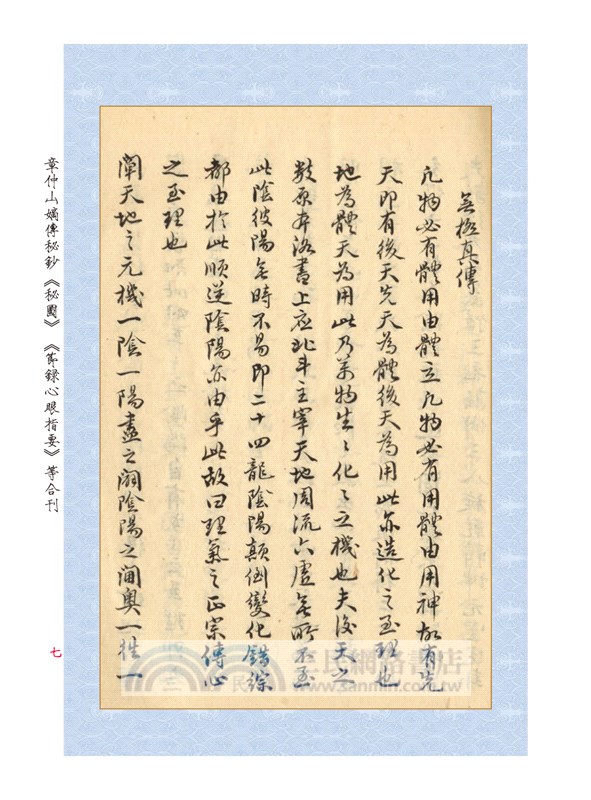 無極真傳
凡物必有體用由體立凡物必有用體由用神故有先
天即有後天先天為體後天為用此亦造化之至理也
地為體天為用此乃萬物生〻化〻之機也夫後天之
數原本洛書上應北斗主宰天地周流六虛無所不至
此陰彼陽無時不易即二十四龍陰陽顛倒變化錯綜
都由於此順逆陰陽亦由乎此故曰理氣之正宗傳心
之至理也
闡天地之元機一陰一陽盡之洞陰陽之閫奧一牝一
章仲山嫡傳秘鈔《秘圖》《節錄心眼指要》等合刊
七
三民網路書店
www.sanmin.com.tw